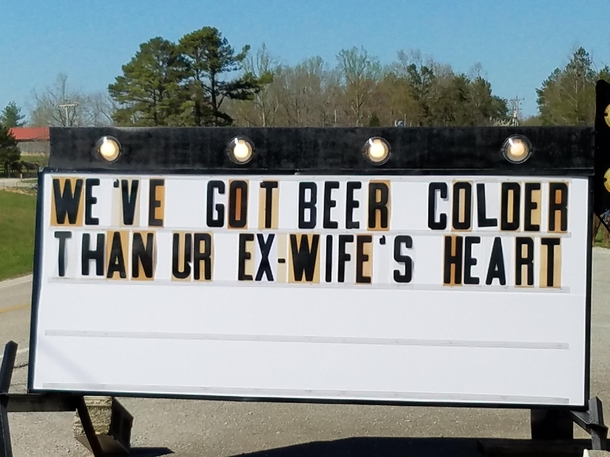 WE'VE GOT BEER COLDER
THAN UR EX-WIFE'S HEART